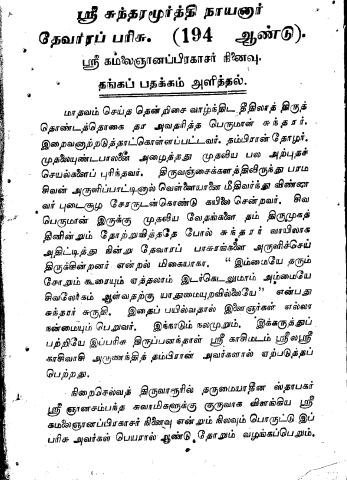 ஸ்ரீ சுந்தரமூர்த்தி நாயனார்
தேவாரப் பரிசு. (194 ஆண்டு).
ஸ்ரீ கமலைஞானப்பிரகாசர் நினைவு.
தங்கப் பதக்கம் அளித்தல்.
மாதவம் செய்த தென்றிசை வாழ்ந்திட தீதிலாத் திருத்
தொண்டத்தொகை தா அவதரித்த பெருமான் சுந்தரர்.
இறைவனாற்றடுத்தாட்கொள்ளப்பட்டவர். தம்பிரான் தோழர்.
முதலையுண்டபாலனை அழைத்தது முதலிய பல அற்புதச்
செயல்களைப் புரிந்தவர். திருவஞ்சைக்களத்திலிருந்து பரம
சிவன் அருளிப்பாட்டினால் வெள்ளையானை மீதிவர்ந்து விண்ண
வர் புடைசூழ சேரருடன்கொண்டு கயிலை சென்றவர். சிவ
பெருமான் இருக்கு முதலிய வேதங்களை தம் திருமுகத்
தினின்றும் தோற்றுவித்ததே போல் சுந்தரர் வாயிலாக
அதிட்டித்து நின்று தேவாரப் பாசுரங்களை அருளிச்செய்
திருக்கின்றனர் என்றல் மிகையாகா. "இம்மையே தரும்
சோறும் கூரையும் ஏத்தலாம் இடர்கெடலுமாம் அம்மையே
சிவலோகம் ஆள்வதற்கு யாதுமையுறவில்லையே" என்பது
சுந்தரர் சுருதி. இதைப் பயில்வதால் இளைஞர்கள் எல்லா
நன்மையும் பெறுவர். இங்காடும் நலமுறும். இக்கருத்துப்
பற்றியே இப்பரிசு திருப்பனந்தாள் ஸ்ரீ காசிமடம் ஸ்ரீலஸ்ரீ
காசிவாசி அருணந்தித் தம்பிரான் அவர்களால் ஏற்படுத்தப்
பெற்றது.
நிறைசெல்வத் திருவாரூரில் தருமையாதீன ஸ்தாபகர்
ஸ்ரீ ஞானசம்பந்த சுவாமிகளுக்கு குருவாக விளங்கிய ஸ்ரீ
கமலைஞானப்பிரகாசர் நினைவு என்றும் நிலவும் பொருட்டு இப்
பரிசு அவர்கள் பெயரால் ஆண்டு தோறும் வழங்கப்பெறும்.